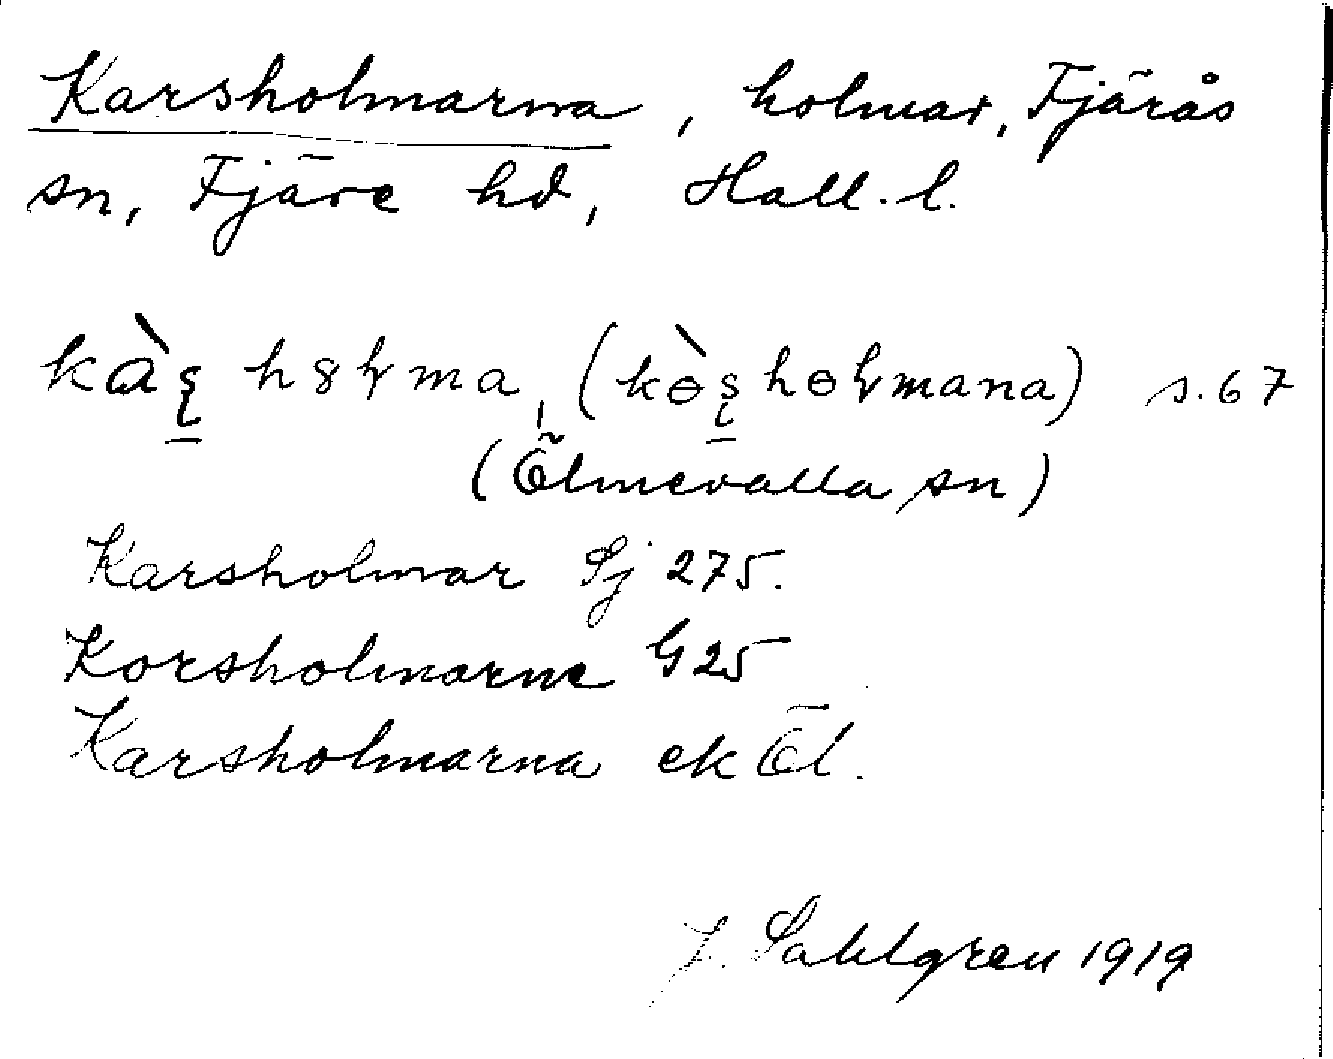 Karsholmarna, holmar, Fjärås
sn, Fjäre hd, Hall. l.
kàş h8ɫma, (kɵ̀ş hɵɫmana) s. 67
(Ölmevalla sn)
Karsholmar Sj 275.
Korsholmarne G 25
Karsholmarna ek Öl.
J. Sahlgren 1919